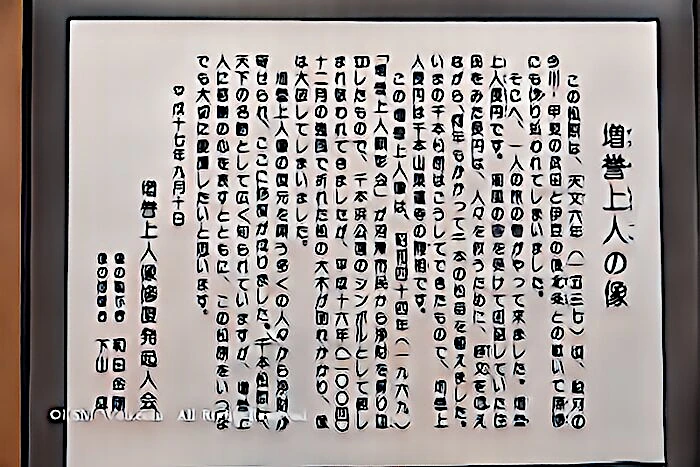 増誉上人の像
この松原は、天文六年(一五三七)
今川・甲斐の武田と伊豆の北条との戦いで
にも切り払われてしまいました。
そこへ、一人の旅の僧がやって来ました。増誉
上人長円です。潮風の害を受けて困窮していた
民をみた長円は、人々を救うために、
ながら、何年もかかって千本の松苗を植えました。
いまの千本松原はこうしてできたもので、増誉上
人長円は千本山乗運寺の開祖です。
この増誉上人像は、昭和四十四年(一九六九)
「増誉上人顕彰会」が沼津市民から浄財を募り
したもので、千本浜公園のシンボルとして親し
まれ敬われてきましたが、平成十六年(二〇〇四)
十二月の強風で折れた松の大木が倒れかかり、像
は大破してしまいました。
増誉上人像の復元を願う多くの人々から浄財が
寄せられ、ここに修復が成りました。千本松原は
天下の名勝として広く知られていますが、増誉上
人に感謝の心を表すとともに、この松原をいつま
でも大切に愛護したいと思います。
平成十七年九月十日
増誉上人像修復発起人会
下山